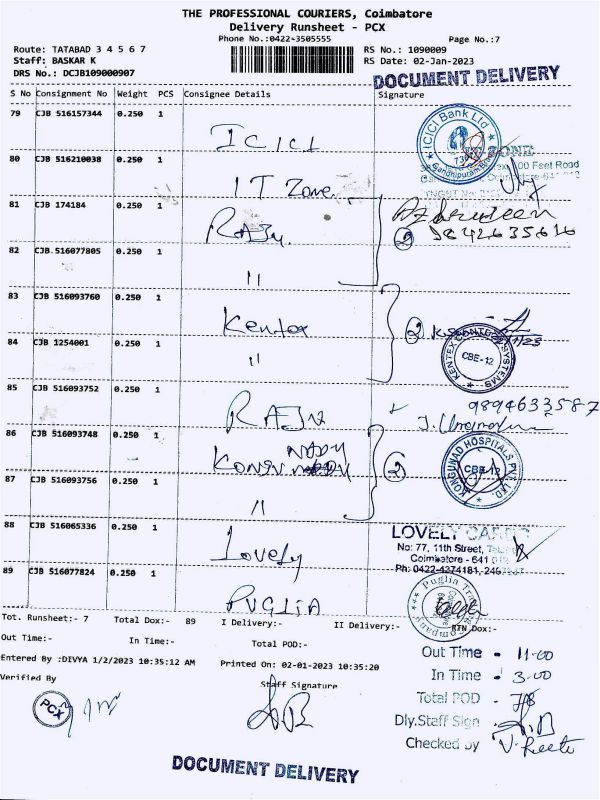 THE PROFESSIONAL COURIERS, Coimbatore
Delivery Runsheet - PCX
Phone No.:0422-3505555 Page No.:7
Route: TATABAD 3 4 5 6 7 RS No.: 1090009
Staff: BASKAR K RS Date: 02-Jan-2023
DRS No.: DCJB109000907 DOCUMENT DELIVERY
S No Consignment No Weight PCS Consignee Details Signature
79 CJB 516157344 0.250 1 ICICI
ICICI Bank Ltd
80 CJB 516210038 0.250 1 IT Zone
Feet Road
81 CJB 174184 0.250 1 RAJU
2 9842635616
82 CJB 516077805 0.250 1 "
83 CJB 516093760 0.250 1 Kentex 2
84 CJB 1254001 0.250 1 "
KENTEX SYSTEMS CBE-12
85 CJB 516093752 0.250 1 RAJU
9894633587
86 CJB 516093748 0.250 1 KONGU NADU 2
KONGUNAD HOSPITALS PVT. LTD. CBE-12
87 CJB 516093756 0.250 1 "
88 CJB 516065336 0.250 1 Lovely
LOVELY CARDS
No: 77, 11th Street,
Coimbatore - 641
Ph: 0422-4374181,
89 CJB 516077824 0.250 1 PUGLIA
Puglia Company
Tot. Runsheet:- 7 Total Dox:- 89 I Delivery:- II Delivery:- RTN Dox:-
Out Time:- In Time:- Total POD:-
Entered By :DIVYA 1/2/2023 10:35:12 AM Printed On: 02-01-2023 10:35:20
Verified By Staff Signature
PCX
Out Time - 11-00
In Time - 3-00
Total POD - 78
Dly.Staff Sign
Checked by
DOCUMENT DELIVERY